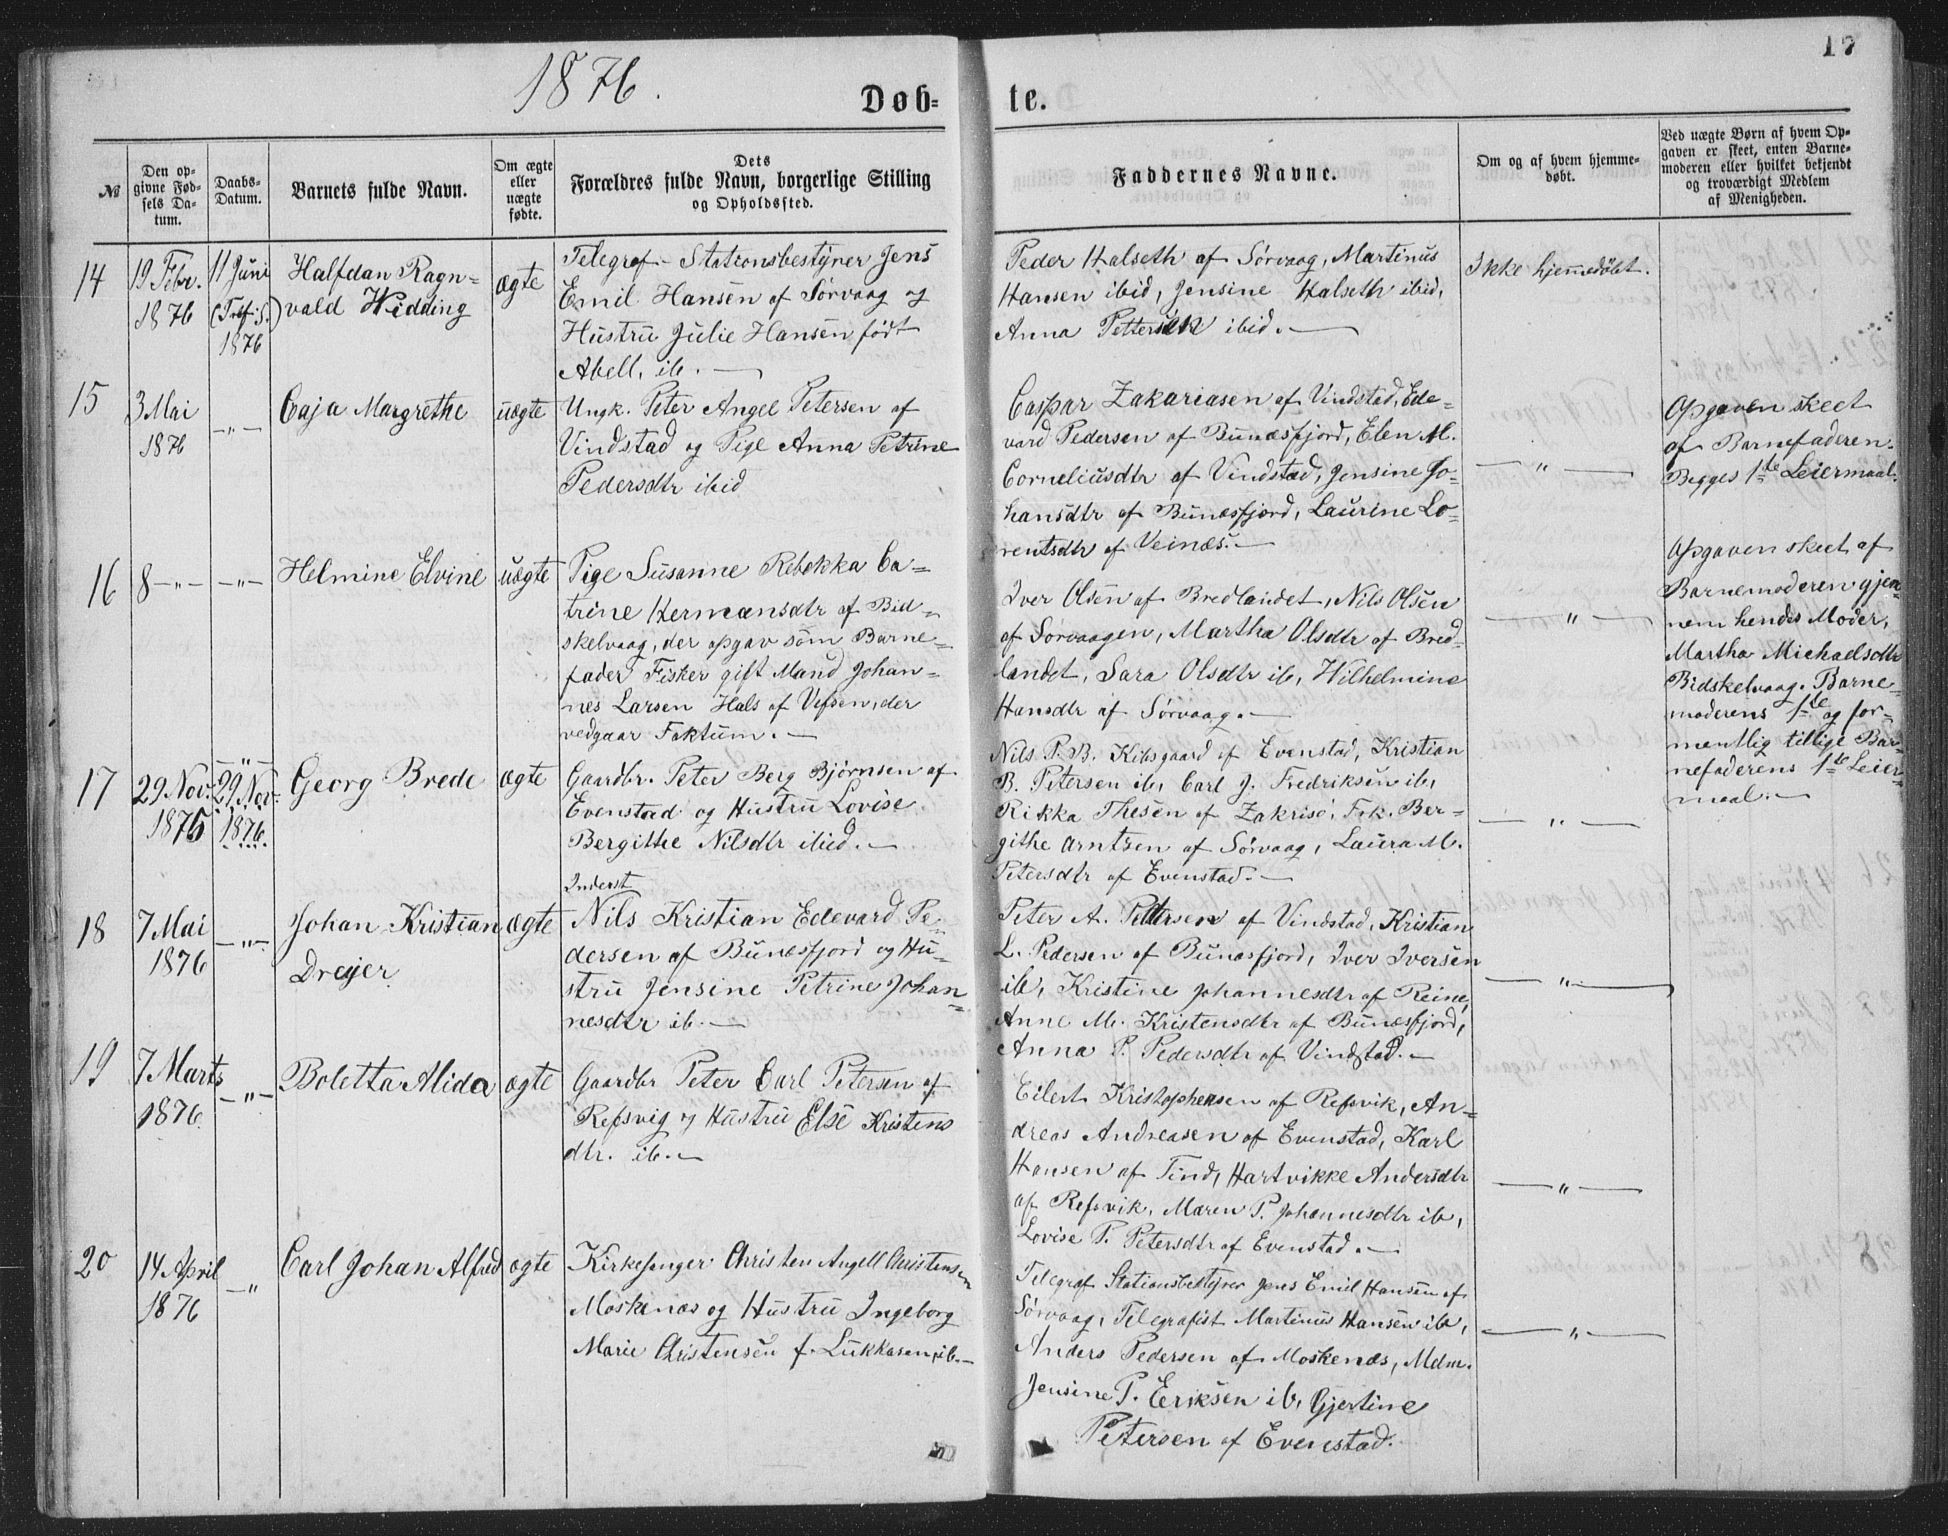 1876.
17
Døb-
te.
№
Den op-
givne Fød-
sels Da-
tum.
Daabs-
Datum.
Barnets fulde Navn.
Om ægte
eller
uægte
fødte.
Dets
Forældres fulde Navn, borgerlige Stilling
og Opholdssted.
Faddernes Navne.
Om og af hvem hjemme-
døbt.
Ved uægte Børn af hvem Op-
gaven er skeet, enten Barne-
moderen eller hvilket bekjendt
og troværdigt Medlem
af Menigheden.
14
19 Febr.
1876
11 Juni
(Tref. S.)
1876
Halfdan Ragn-
vald Widding
ægte
Telegraf-Stationsbestyrer Jens
Emil Hansen af Sørvaag og
Hustru Julie Hansen født
Abell, ib. —
Peder Halseth af Sørvaag, Martinus
Hansen ibid, Jensine Halseth ibid,
Anna Pettersen ibid. —
Ikke hjemmedøbt.
15
3 Mai
1876
—"—
Caja Margrethe
uægte
Ungk. Peter Angel Petersen af
Vindstad og Pige Anna Petrine
Pedersdtr ibid
Caspar Zakariasen af Vindstad, Ede-
vard Pedersen af Bunæsfjord, Elen M.
Corneliusdtr af Vindstad, Jensine Jo-
hansdtr af Bunæsfjord, Laurine Lo-
rentsdtr af Veinæs. —
— " —
Opgaven skeet
af Barnefaderen.
Begges 1ste Leiermaal.
16
8 —"—
—"—
Helmine Elvine
uægte
Pige Susanne Rebekka Ca-
trine Hermansdtr af Bid-
skelvaag, der opgav som Barne-
fader Fisker gift Mand Johan-
nes Larsen Hals af Vefsen, der
vedgaar Faktum. —
Iver Olsen af Bredlandet, Nils Olsen
af Sørvaagen, Martha Olsdtr af Bred-
landet, Sara Olsdtr ib, Wilhelmine
Hansdtr af Sørvaag. —
— " —
Opgaven skeet af
Barnemoderen gjen-
nem hendes Moder,
Martha Michaelsdtr
Bidskelvaag. Barne-
moderens 1ste og for-
mentlig tillige Bar-
nefaderens 1ste Leier-
maal. —
17
29 Nov.
1875
—"—
29 Nov.
1876
Georg Brede
ægte
Gaardbr. Peter Berg Bjørnsen af
Evenstad og Hustru Lovise
Bergithe Nilsdtr ibid. —
Nils P. B. Kibsgaard af Evenstad, Kristian
B. Petersen ib, Carl J. Fredriksen ib,
Rikka Thesen af Zakrisø, Frk. Ber-
githe Arntzen af Sørvaag, Laura M.
Petersdtr af Evenstad. —
— " —
18
7 Mai
1876
—"—
Johan Kristian
Dreyer
ægte
Inderst
Nils Kristian Edevard Pe-
dersen af Bunæsfjord og Hu-
stru Jensine Petrine Johan-
nesdtr ib. —
Peter A. Pettersen af Vindstad, Kristian
L. Pedersen af Bunæsfjord, Iver Iversen
ib, Kristine Johannesdtr af Reine,
Anne M. Kristensdtr af Bunæsfjord,
Anna P. Pedersdtr af Vindstad. —
— " —
19
7 Marts
1876.
—"—
Boletta Alida
ægte
Gaardbr Peter Carl Petersen af
Refsvig og Hustru Else Kristens
dtr. ib. —
Eilert Kristophersen af Refsvik, An-
dreas Andreasen af Evenstad, Karl
Hansen af Tind, Hartvikke Andersdtr
af Refsvik, Maren P. Johannesdtr ib,
Lovise P. Petersdtr af Evenstad. —
— " —
20
14 April
1876
—"
Carl Johan Alfred
ægte
Kirkesanger Christen Angell Christensen
Moskenæs og Hustru Ingeborg
Marie Christensen f. Lukkasen, ib. —
Telegraf Stationsbestyrer Jens Emil Hansen af
Sørvaag, Telegrafist Martinus Hansen ib,
Anders Pedersen af Moskenæs, Mdm.
Jensine P. Eriksen ib, Gjertine
Petersen af Evenstad.
— " —